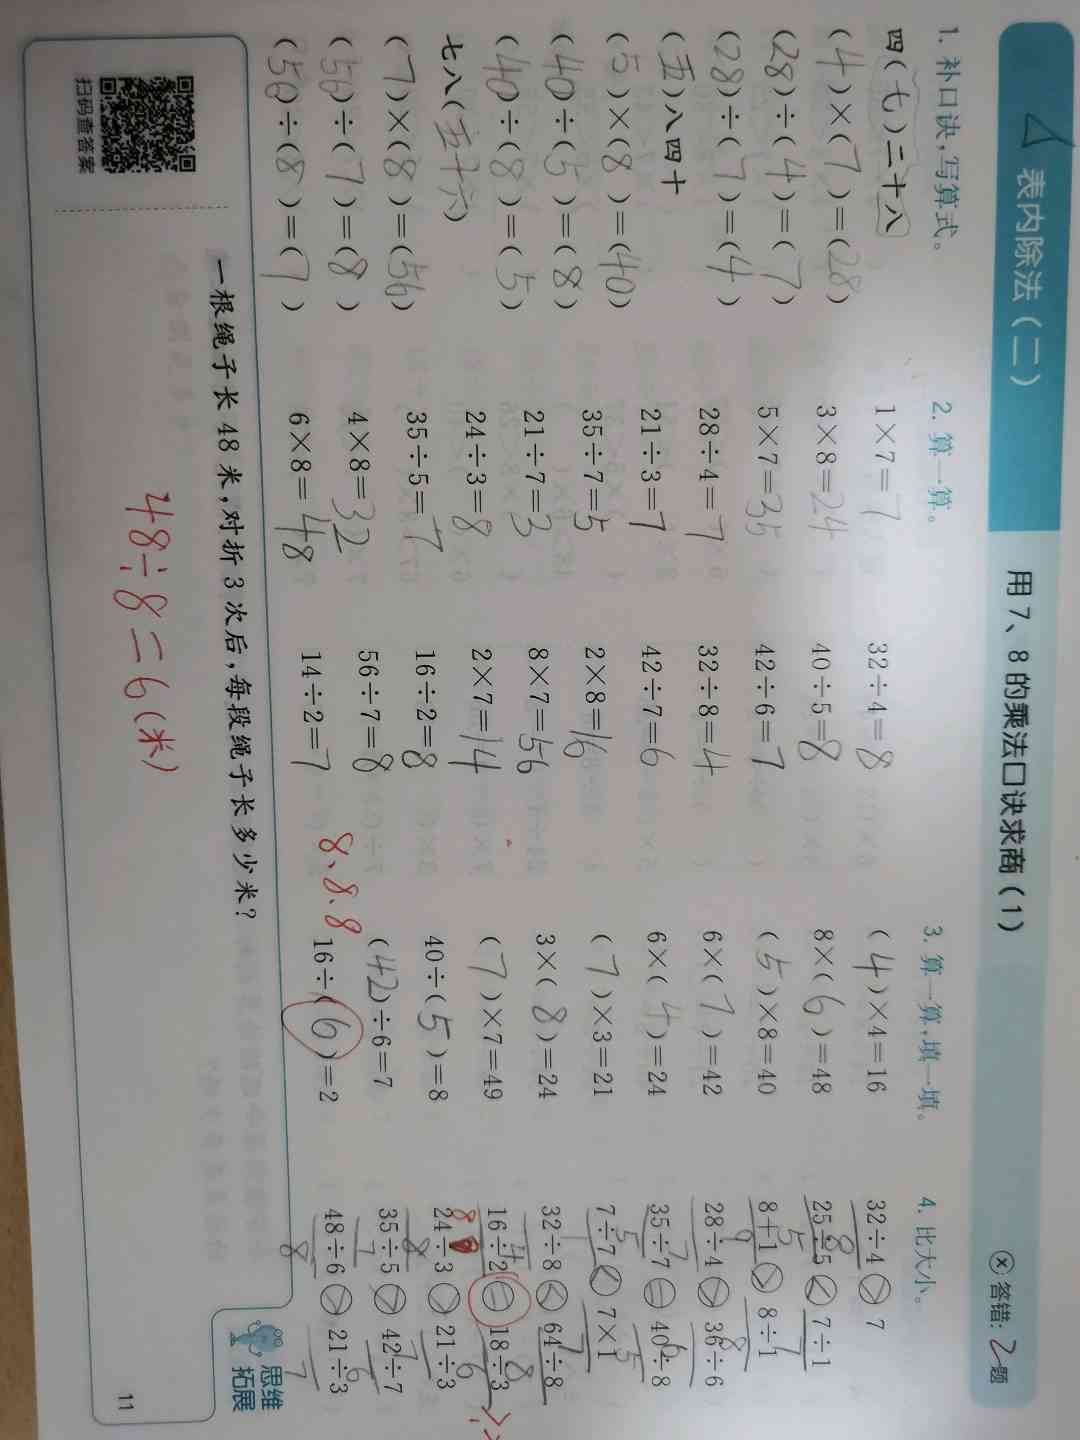 表内除法(二)
用7、8的乘法口诀求商(1)
答错:2题
1. 补口诀,写算式。
四(七)二十八
(4)×(7)=(28)
(28)÷(4)=(7)
(28)÷(7)=(4)
(五)八四十
(5)×(8)=(40)
(40)÷(5)=(8)
(40)÷(8)=(5)
七八(五十六)
(7)×(8)=(56)
(56)÷(7)=(8)
(56)÷(8)=(7)
2. 算一算。
1×7=7
3×8=24
5×7=35
28÷4=7
21÷3=7
35÷7=5
21÷7=3
24÷3=8
35÷5=7
4×8=32
6×8=48
32÷4=8
40÷5=8
42÷6=7
32÷8=4
42÷7=6
2×8=16
8×7=56
2×7=14
16÷2=8
56÷7=8
14÷2=7
3. 算一算,填一填。
(4)×4=16
8×(6)=48
(5)×8=40
6×(7)=42
6×(4)=24
(7)×3=21
3×(8)=24
(7)×7=49
40÷(5)=8
(42)÷6=7
16÷(6)=2
8、8、8
4. 比大小。
32÷4>7
25÷5<7÷1
8+1>8÷1
28÷4>36÷6
35÷7=40÷8
7÷7<7×1
32÷8<64÷8
16÷2=18÷3
24÷3>21÷3
35÷5>42÷7
48÷6>21÷3
思维
拓展
一根绳子长48米,对折3次后,每段绳子长多少米?
48÷8=6(米)
扫码查答案
11